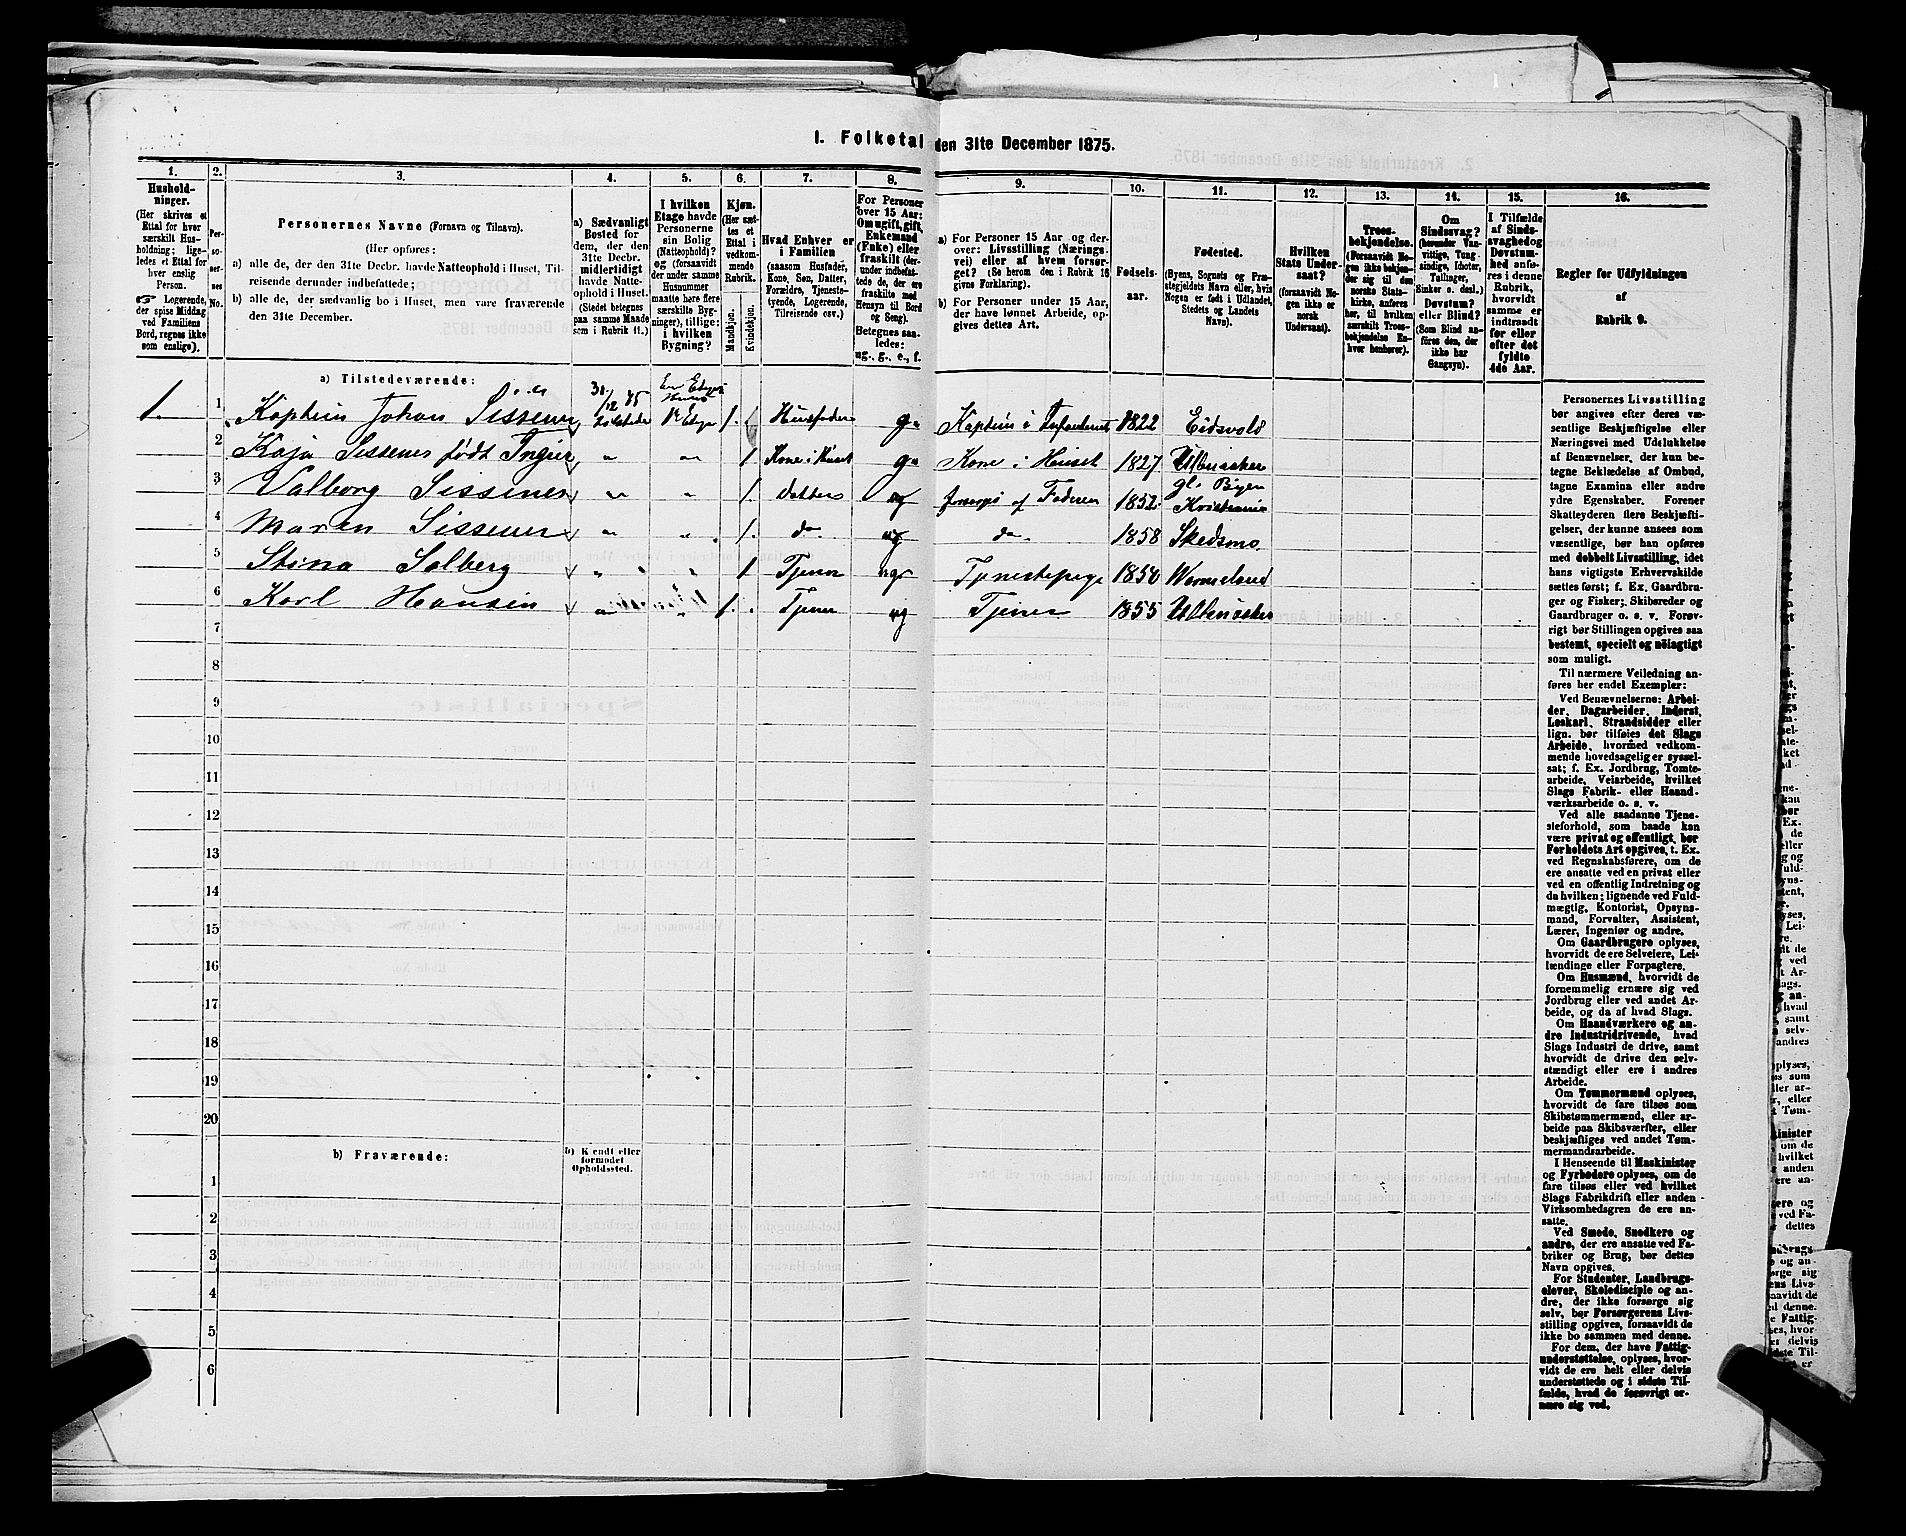 1. Folketal den 31te December 1875.
1. 2. 3. 4. 5. 6. 7. 8. 9. 10. 11. 12. 13. 14. 15. 16.
Hushold-
ninger.
(Her skrives et
Ettal for hver
særskilt Hus-
holdning; lige-
ledes et Ettal for
hver enslig
Person.
☞ Logerende,
der spise Middag
ved Familiens
Bord, regnes ikke
som enslige).
Per-
so-
ner-
nes
No.
Personernes Navne (Fornavn og Tilnavn).
(Her opføres:
a) alle de, der den 31te Decbr. havde Natteophold i Huset, Til-
reisende derunder indbefattede;
b) alle de, der sædvanlig bo i Huset, men vare fraværende
den 31te December.
a) Sædvanligt
Bosted for
dem, der den
31te Decbr.
midlertidigt
havde Natte-
ophold i Huset.
(Stedet betegnes
paa samme Maade
som i Rubrik 11.)
I hvilken
Etage havde
Personerne
sin Bolig
(Natteophold)?
og (forsaavidt
der under samme
Husnummer
maatte høre flere
særskilte Byg-
ninger), tillige:
i hvilken
Bygning?
Kjøn.
(Her sæt-
tes et
Ettal i
vedkom-
mende
Rubrik.
Mandkjøn.
Kvindekjøn.
Hvad Enhver er
i Familien
(saasom Husfader,
Kone, Søn, Datter,
Forældre, Tjeneste-
tyende, Logerende,
Tilreisende osv.)
For Personer
over 15 Aar:
Om ugift, gift,
Enkemand
(Enke) eller
fraskilt (der-
under indbefat-
tede de, der ere
fraskilte med
Hensyn til Bord
og Seng).
Betegnes saa-
ledes:
ug., g., e., f.
a) For Personer 15 Aar og der-
over: Livsstilling (Nærings-
vei) eller af hvem forsør-
get? (Se herom den i Rubrik 16
givne Forklaring).
b) For Personer under 15 Aar,
der have lønnet Arbeide, op-
gives dettes Art.
Fødsels-
aar.
Fødested.
(Byens, Sognets og Præ-
stegjeldets Navn eller, hvis
Nogen er født i Udlandet,
Stedets og Landets
Navn).
Hvilken
Stats Under-
saat?
(forsaavidt No-
gen ikke er
norsk
Undersaat).
Troes-
bekjendelse.
(Forsaavidt No-
gen ikke bekjen-
der sig til den
norske Stats-
kirke, anføres
her, til hvilken
særskilt Troes-
bekjendelse En-
hver henhører).
Om
Sindssvag?
(herunder Van-
vittige, Tung-
sindige, Idioter,
Tullinger,
Sinker o. desl.)
Døvstum?
eller Blind?
(Som Blind an-
føres den, der
ikke har
Gangsyn).
I Tilfælde
af Sinds-
svaghed og
Døvstum-
hed anfø-
res i denne
Rubrik,
hvorvidt
samme er
indtraadt
før eller
efter det
fyldte
4de Aar.
Regler for Udfyldningen
af
Rubrik 9.
a) Tilstedeværende:
1. 1 Kaptein Johan Sissener 31/12 75 tilstede 1. Husfader g. Kaptein i Infanteriet 1822 Eidsvold
2 Kaja Sissener født 1 Kone i Huset g. Kone i Huset 1827 Ullensaker
3 Valborg Sissener 1. Datter ug forsørges af Faderen 1852 gl. Byen Kristiania
4 Maren Sissener 1. do. ug do. 1858 Skedsmo
5 Stina Solberg 1 Tjener ug Tjenestepige 1850 Wermeland
6 Karl Hansen 1. Tjener ug Tjener 1855 Ullensaker
7
8
9
10
11
12
13
14
15
16
17
18
19
20
b) Fraværende: b) Kendt eller
formodet
Opholdssted.
1
2
3
4
5
6
Personernes Livsstilling
bør angives efter deres væ-
sentlige Beskjæftigelse eller
Næringsvei med Udelukkelse
af Benævnelser, der kun be-
tegne Beklædelse af Ombud,
tagne Examina eller andre
ydre Egenskaber. Forener
Skatteyderen flere Beskjæfti-
gelser, der kunne ansees som
væsentlige, bør han opføres
med dobbelt Livsstilling, idet
hans vigtigste Erhvervskilde
sættes først; f. Ex. Gaardbru-
ger og Fisker; Skibsreder og
Gaardbruger o. s. v. Forøv-
rigt bør Stillingen opgives saa
bestemt, specielt og nöiagtigt
som muligt.
Til nærmere Veiledning an-
føres her endel Exempler:
Ved Benævnelserne: Arbei-
der, Dagarbeider, Inderst,
Løskarl, Strandsidder eller
lign. bør tilføies det Slags
Arbeide, hvormed vedkom-
mende hovedsagelig er syssel-
sat; f. Ex. Jordbrug, Tomte-
arbeide, Veiarbeide, hvilket
Slags Fabrik- eller Haand-
værksarbeide o. s. v.
Ved alle saadanne Tjene-
steforhold, som baade kan
være privat og offentligt, bør
Forholdets Art opgives, t. Ex.
ved Regnskabsførere, om de
ere ansatte ved en privat eller
ved en offentlig Indretning og
da hvilken; lignende ved Fuld-
mægtig, Kontorist, Opsyns-
mand, Forvalter, Assistent,
Lærer, Ingeniør og andre.
Om Gaardbrugere oplyses,
hvorvidt de ere Selveiere, Lei-
lændinge eller Forpagtere.
Om Husmænd, hvorvidt de
fornemmelig ernære sig ved
Jordbrug eller ved andet Ar-
beide, og da af hvad Slags.
Om Haandværkere og an-
dre Industridrivende, hvad
Slags Industri de drive, samt
hvorvidt de drive den selv-
stændigt eller ere i andres
Arbeide.
Om Tømmermænd oplyses,
hvorvidt de fare tilsøs som
Skibstømmermænd, eller ar-
beide paa Skibsværfter, eller
beskjæftiges ved andet Tøm-
mermandsarbeide.
I Henseende til Maskinister
og Fyrbødere oplyses, om de
fare tilsøs eller ved hvilket
Slags Fabrikdrift eller anden
Virksomhedsgren de ere an-
satte.
Ved Smede, Snedkere og
andre, der ere ansatte ved Fa-
briker og Brug, bør dettes
Navn opgives.
For Studenter, Landbrugs-
elever, Skoledisciple og an-
dre, der ikke forsørge sig
selv, bør Forsørgerens Livs-
stilling opgives, forsaavidt de
ikke bo sammen med denne.
For dem, der have Fattig-
understøttelse, oplyses, hvor-
vidt de ere helt eller delvis
understøttede og i sidste Til-
fælde, hvad de forøvrigt er-
nære sig ved.